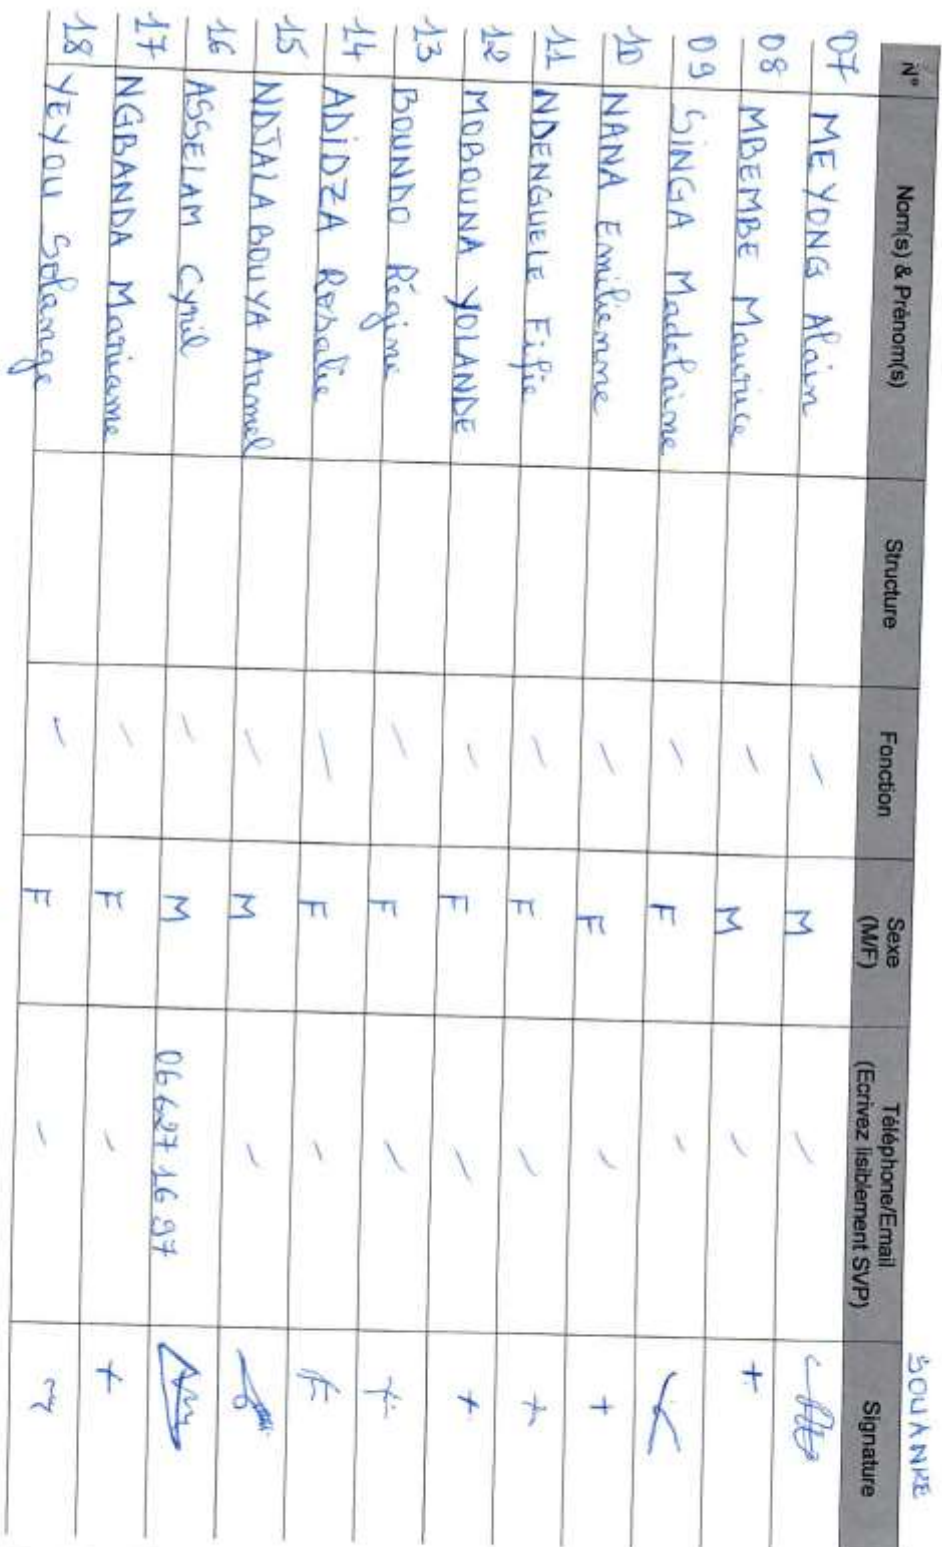 SOUANKE
N° Nom(s) & Prénom(s) Structure Fonction Sexe (M/F) Téléphone/Email (Ecrivez lisiblement SVP) Signature
07 MEYONG Alain - M -
08 MBEMBE Maurice - M - +
09 SINGA Madelaine - F -
10 NANA Emilienne - F - +
11 NDENGUELE Fifie - F - +
12 MOBOUNA YOLANDE - F - +
13 BOUNDO Régine - F -
14 ADIDZA Rosalie - F -
15 NDJALABOUYA Armel - M -
16 ASSELAM Cyril - M 06 627 16 97
17 NGBANDA Mariame - F - +
18 YEYOU Solange - F -